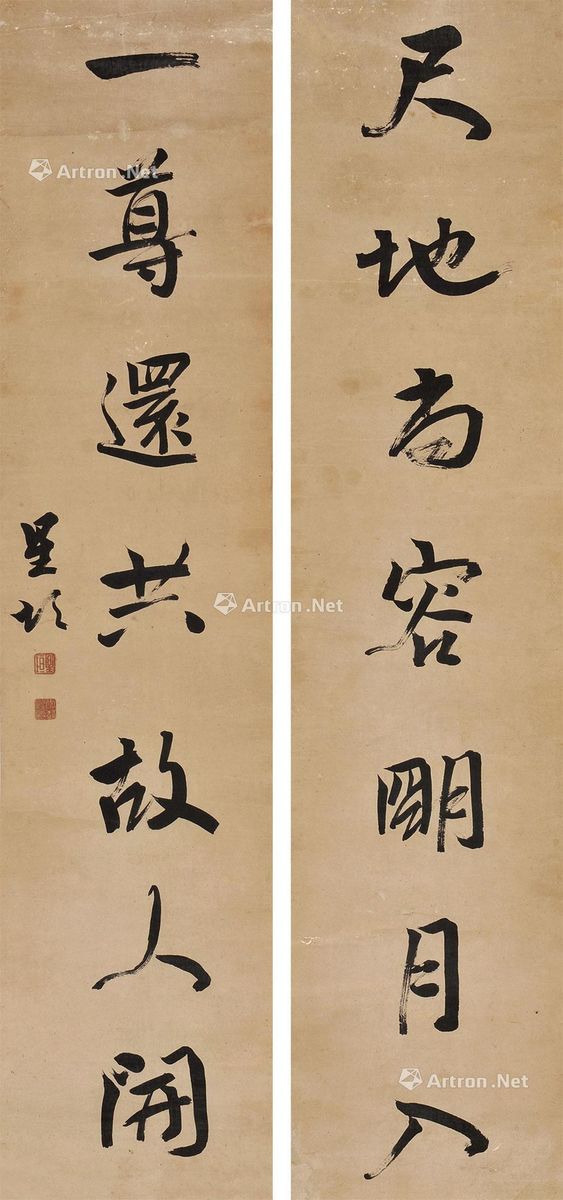 尺地尚容明月入
一尊還共故人開
星垣
Artron.Net
Artron.Net
Artron.Net